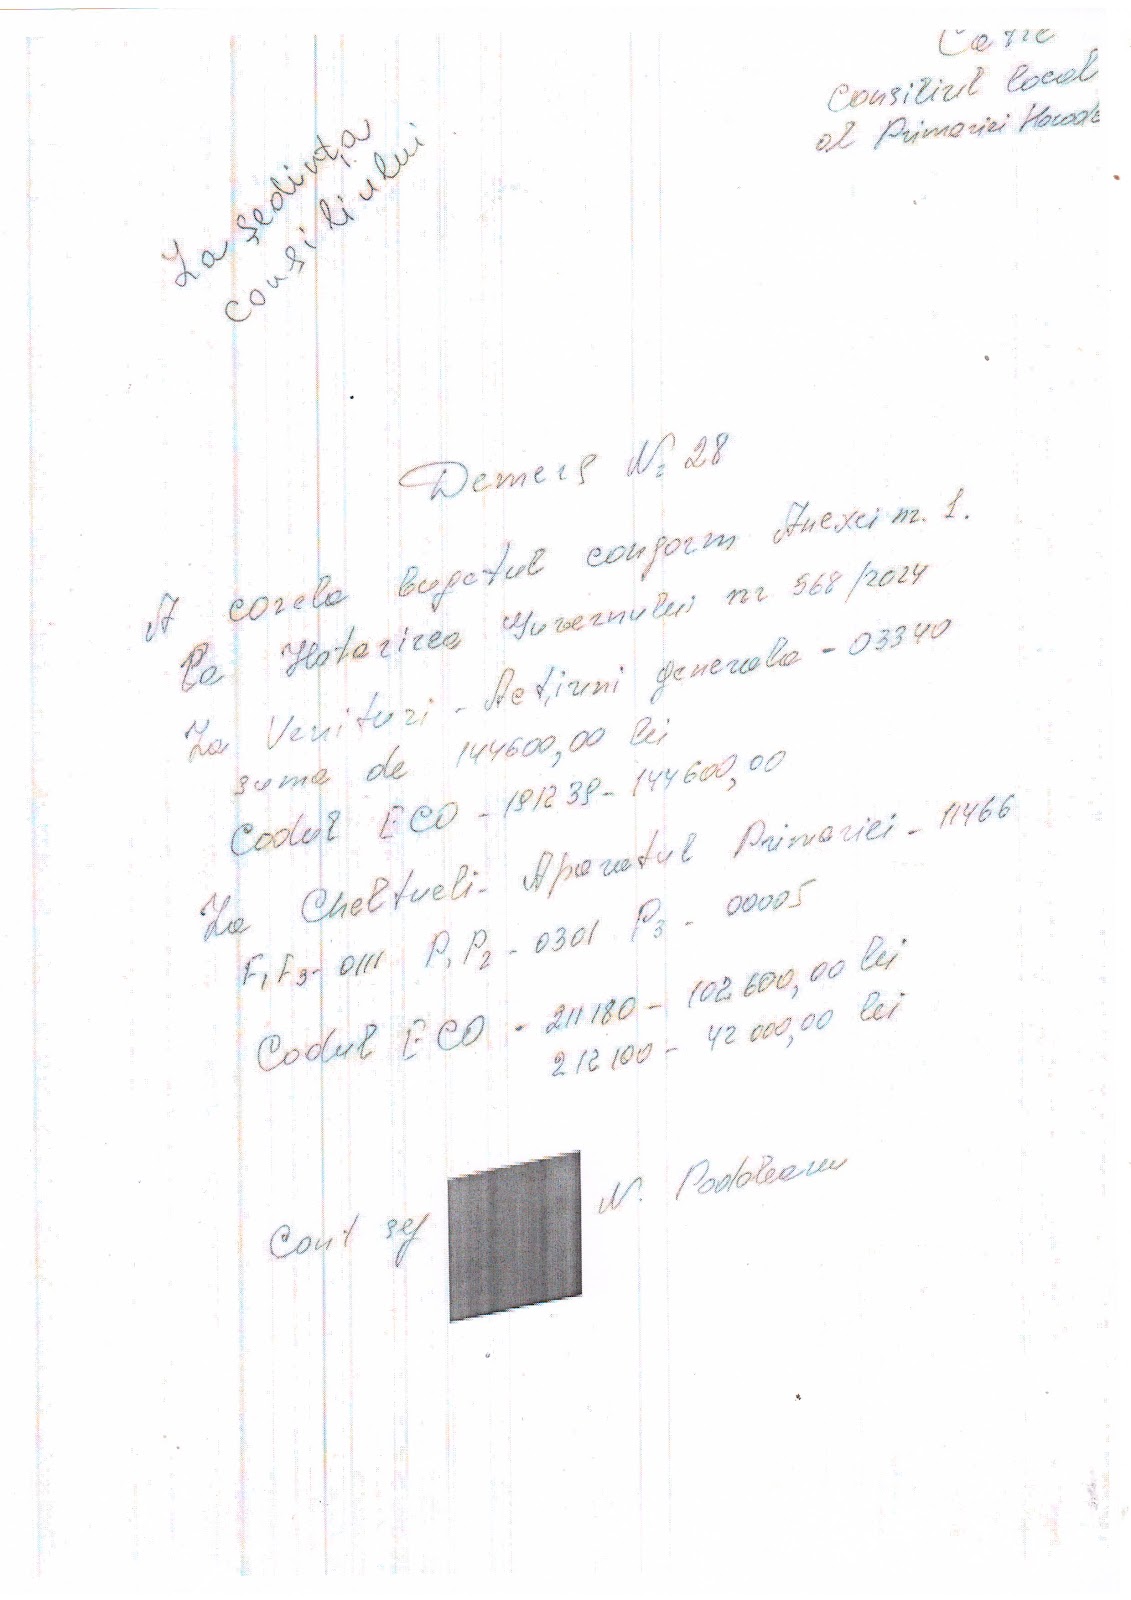 Catre
Consiliul local
al Primariei
La ședința
consiliului
Demers № 28
A corela bugetul conform Anexei nr. 1.
la Hotarirea Guvernului nr 568/2024
La Venituri - Acțiuni generale - 03340
suma de 144600,00 lei
Codul ECO - 191239 - 144600,00
La Cheltueli - Aparatul Primariei - 11466
F1F3 - 0111 P1P2 - 0301 P3 - 00005
Codul ECO - 211180 - 102600,00 lei
212100 - 42000,00 lei
Cont șef N. Podoleanu